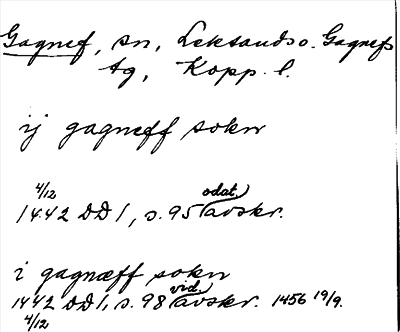 Gagnef, sn, Leksands o. Gagnefs
tg, Kopp. l.
ij gagneff sokn
4/12
1442 DD 1, s. 95 (odat.) avskr.
i gagnæff sokn
1442 DD 1, s. 98 (vid.) avskr. 1456 19/9.
4/12